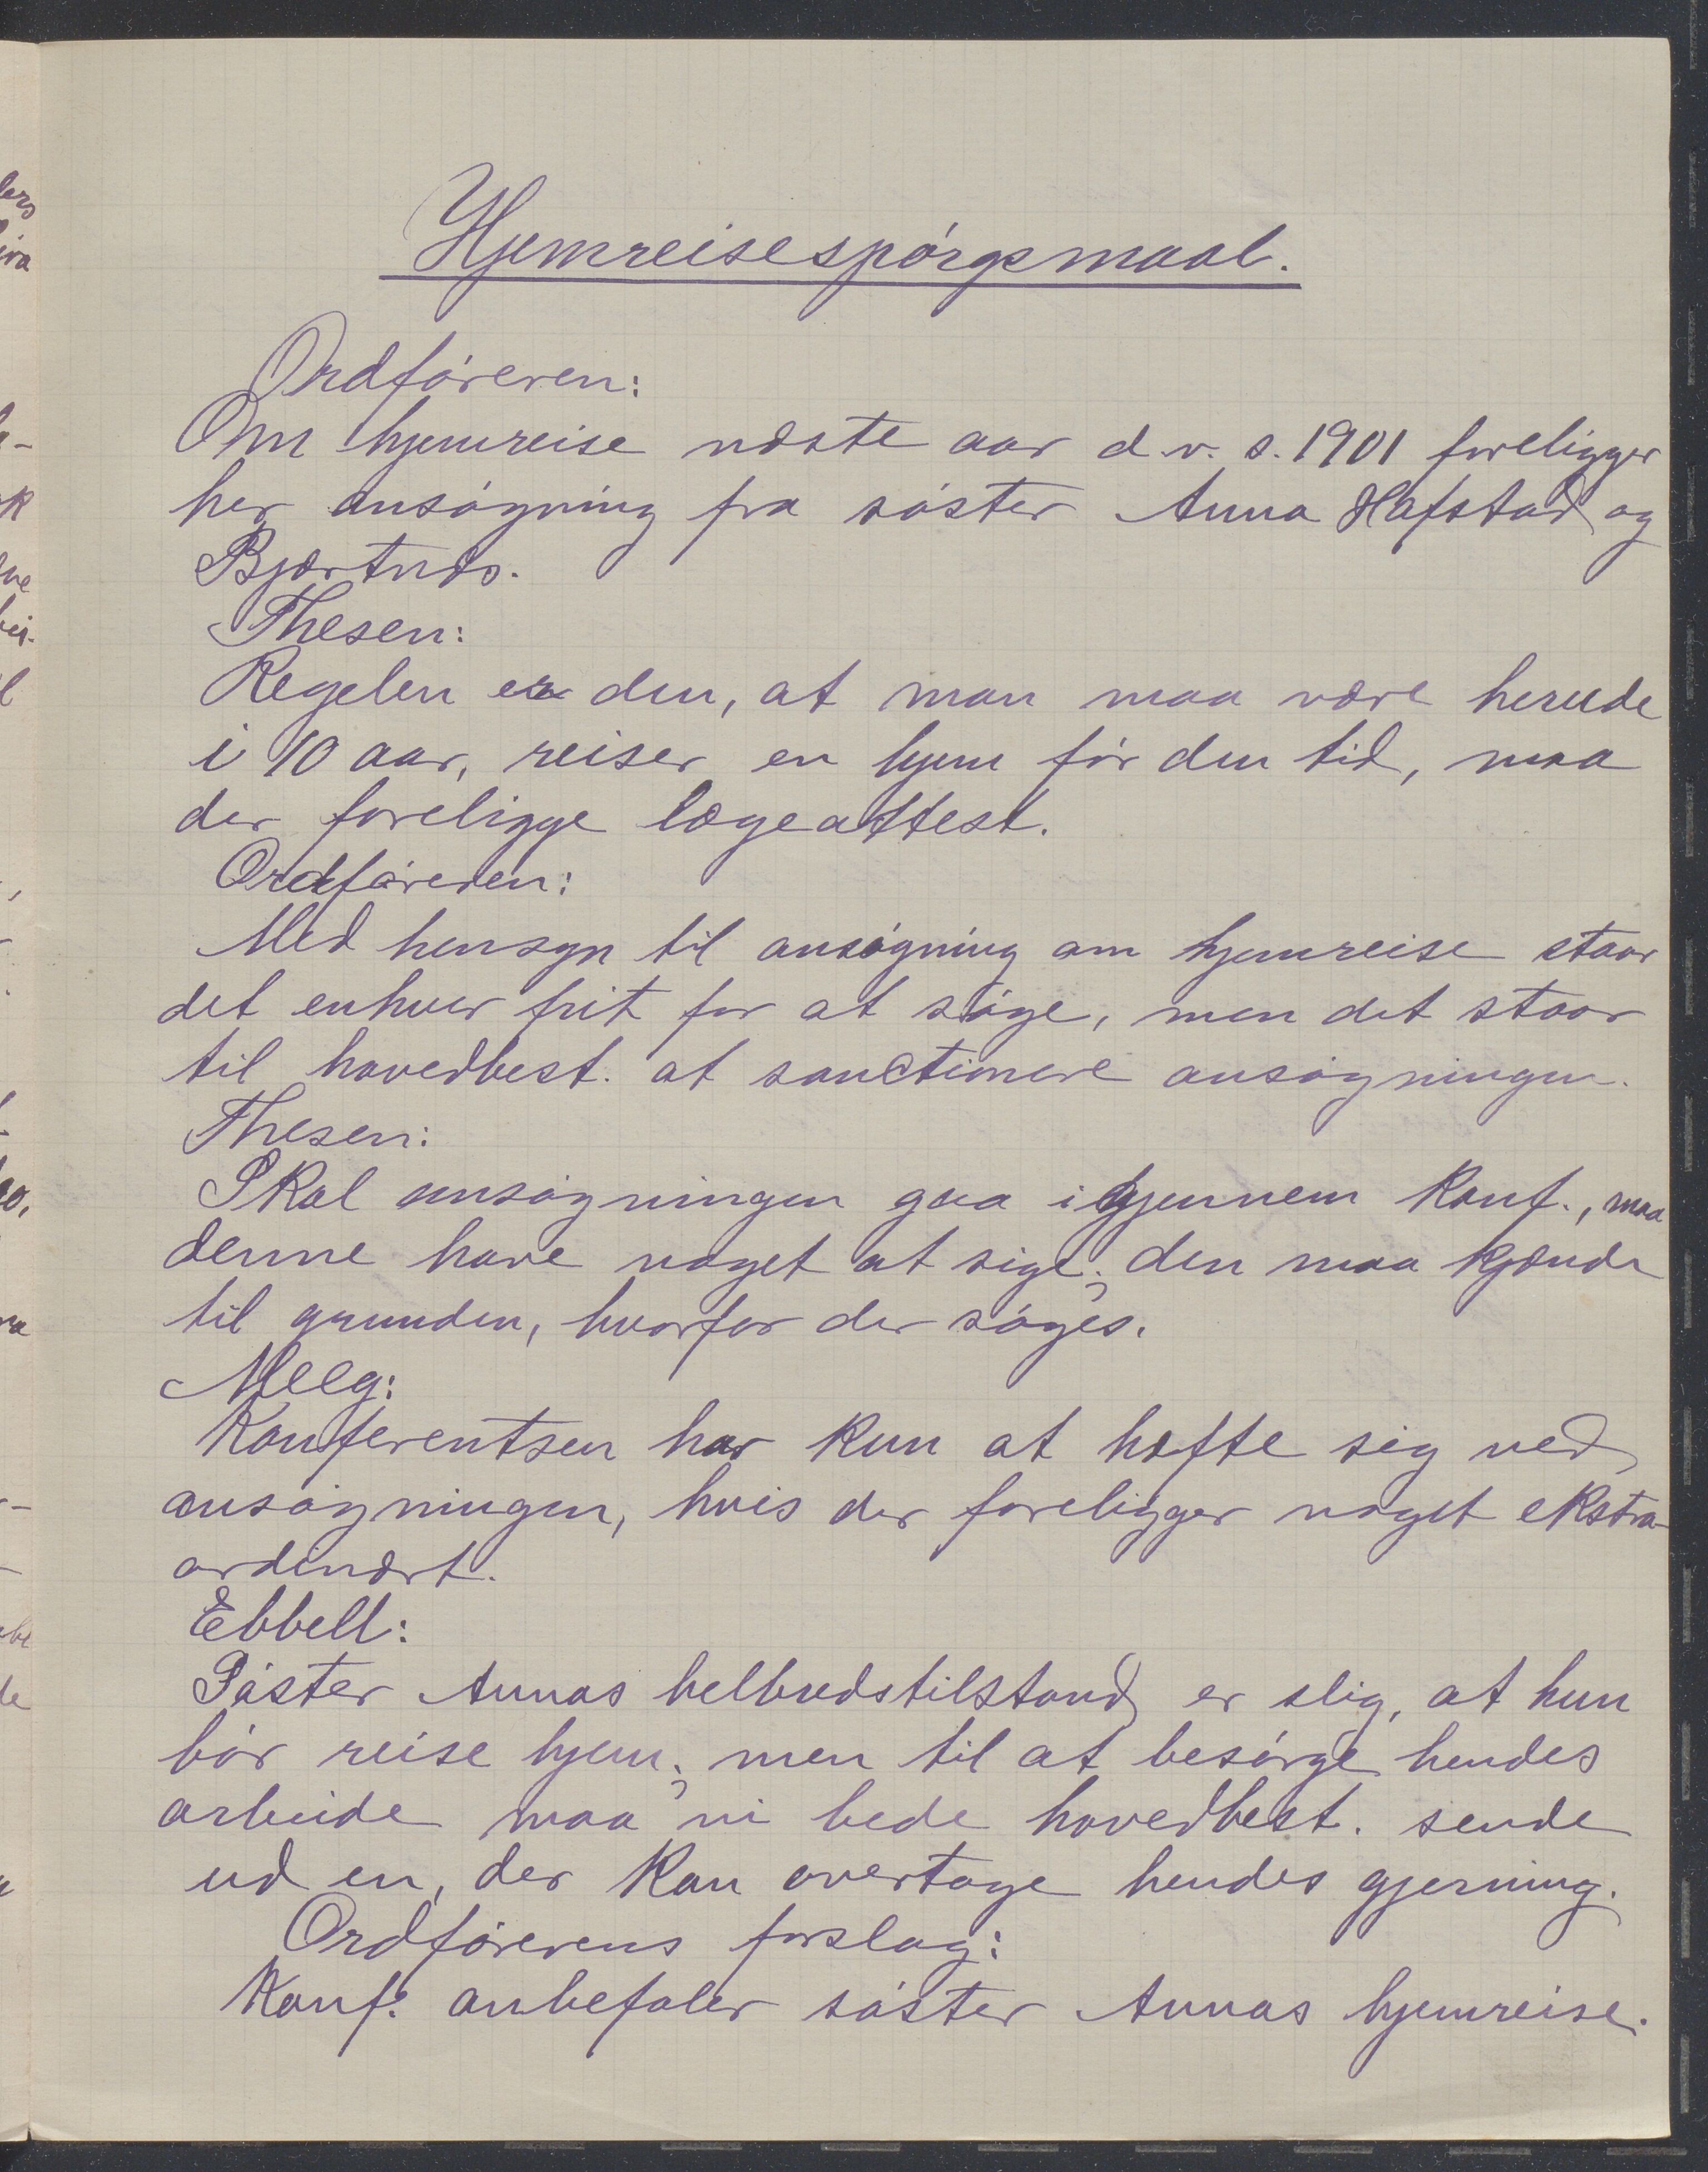 Hjemreisespórgsmaal.
Ordfóreren:
Om hjemreise næste aar d.v.s. 1901 foreligger
her ansógning fra sóster Anna Hafstad og
Bjærtnæs.
Thesen:
Regelen er den, at man maa være herude
i 10 aar, reiser en hjem fór den tid, maa
der foreligge lægeattest.
Ordfóreren:
Med hensyn til ansógning om hjemreise staar
det enhver frit for at sóge, men det staar
til hovedbest. at sanctionere ansógningen.
Thesen:
Skal ansógningen gaa igjennem Konf., maa
denne have noget at sige; den maa kjende
til grunden, hvorfor der sóges.
Meeg:
Konferentsen har kun at hæfte sig ved
ansógningen, hvis der foreligger noget ekstra-
ordinært.
Ebbell:
Sóster Annas helbredstilstand er slig, at hun
bór reise hjem; men til at besórge hendes
arbeide maa vi bede hovedbest. sende
ud en, der kan overtage hendes gjerning.
Ordfórerens forslag:
Konf. anbefaler sóster Annas hjemreise.